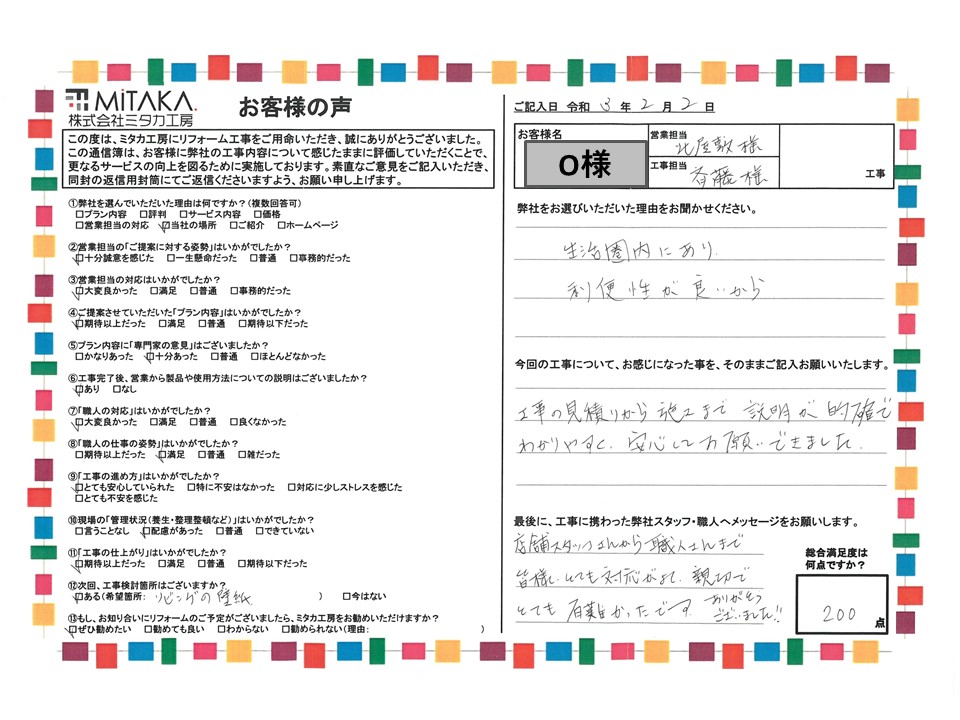 MiTAKA.
株式会社ミタカ工房
お客様の声
この度は、ミタカ工房にリフォーム工事をご用命いただき、誠にありがとうございました。
この通信簿は、お客様に弊社の工事内容について感じたままに評価していただくことで、
更なるサービスの向上を図るために実施しております。素直なご意見をご記入いただき、
同封の返信用封筒にてご返信くださいますよう、お願い申し上げます。
①弊社を選んでいただいた理由は何ですか?(複数回答可)
□プラン内容 □評判 □サービス内容 □価格
□営業担当の対応 ☑当社の場所 □ご紹介 □ホームページ
②営業担当の「ご提案に対する姿勢」はいかがでしたか?
☑十分誠意を感じた □一生懸命だった □普通 □事務的だった
③営業担当の対応はいかがでしたか?
☑大変良かった □満足 □普通 □事務的だった
④ご提案させていただいた「プラン内容」はいかがでしたか?
☑期待以上だった □満足 □普通 □期待以下だった
⑤プラン内容に「専門家の意見」はございましたか?
□かなりあった ☑十分あった □普通 □ほとんどなかった
⑥工事完了後、営業から製品や使用方法についての説明はございましたか?
☑あり □なし
⑦「職人の対応」はいかがでしたか?
☑大変良かった □満足 □普通 □良くなかった
⑧「職人の仕事の姿勢」はいかがでしたか?
□期待以上だった ☑満足 □普通 □雑だった
⑨「工事の進め方」はいかがでしたか?
☑とても安心していられた □特に不安はなかった □対応に少しストレスを感じた
□とても不安を感じた
⑩現場の「管理状況(養生・整理整頓など)」はいかがでしたか?
□言うことなし ☑配慮があった □普通 □できていない
⑪「工事の仕上がり」はいかがでしたか?
□期待以上だった ☑満足 □普通 □期待以下だった
⑫次回、工事検討箇所はございますか?
☑ある(希望箇所: リビングの壁紙 ) □今はない
⑬もし、お知り合いにリフォームのご予定がございましたら、ミタカ工房をお勧めいただけますか?
☑ぜひ勧めたい □勧めても良い □わからない □勧められない(理由: )
ご記入日 令和 3 年 2 月 2 日
お客様名
O様
営業担当
北居敦様
工事担当
斉藤様
工事
弊社をお選びいただいた理由をお聞かせください。
生活圏内にあり、
利便性が良いから
今回の工事について、お感じになった事を、そのままご記入お願いいたします。
工事の見積りから施工まで 説明が的確で
わかりやすく、安心してお願いできました。
最後に、工事に携わった弊社スタッフ・職人へメッセージをお願いします。
店舗スタッフさんから職人さんまで
皆様、とても対応がよく、親切で
とても有難かったです。ありがとう
ございました!!
総合満足度は
何点ですか?
200 点